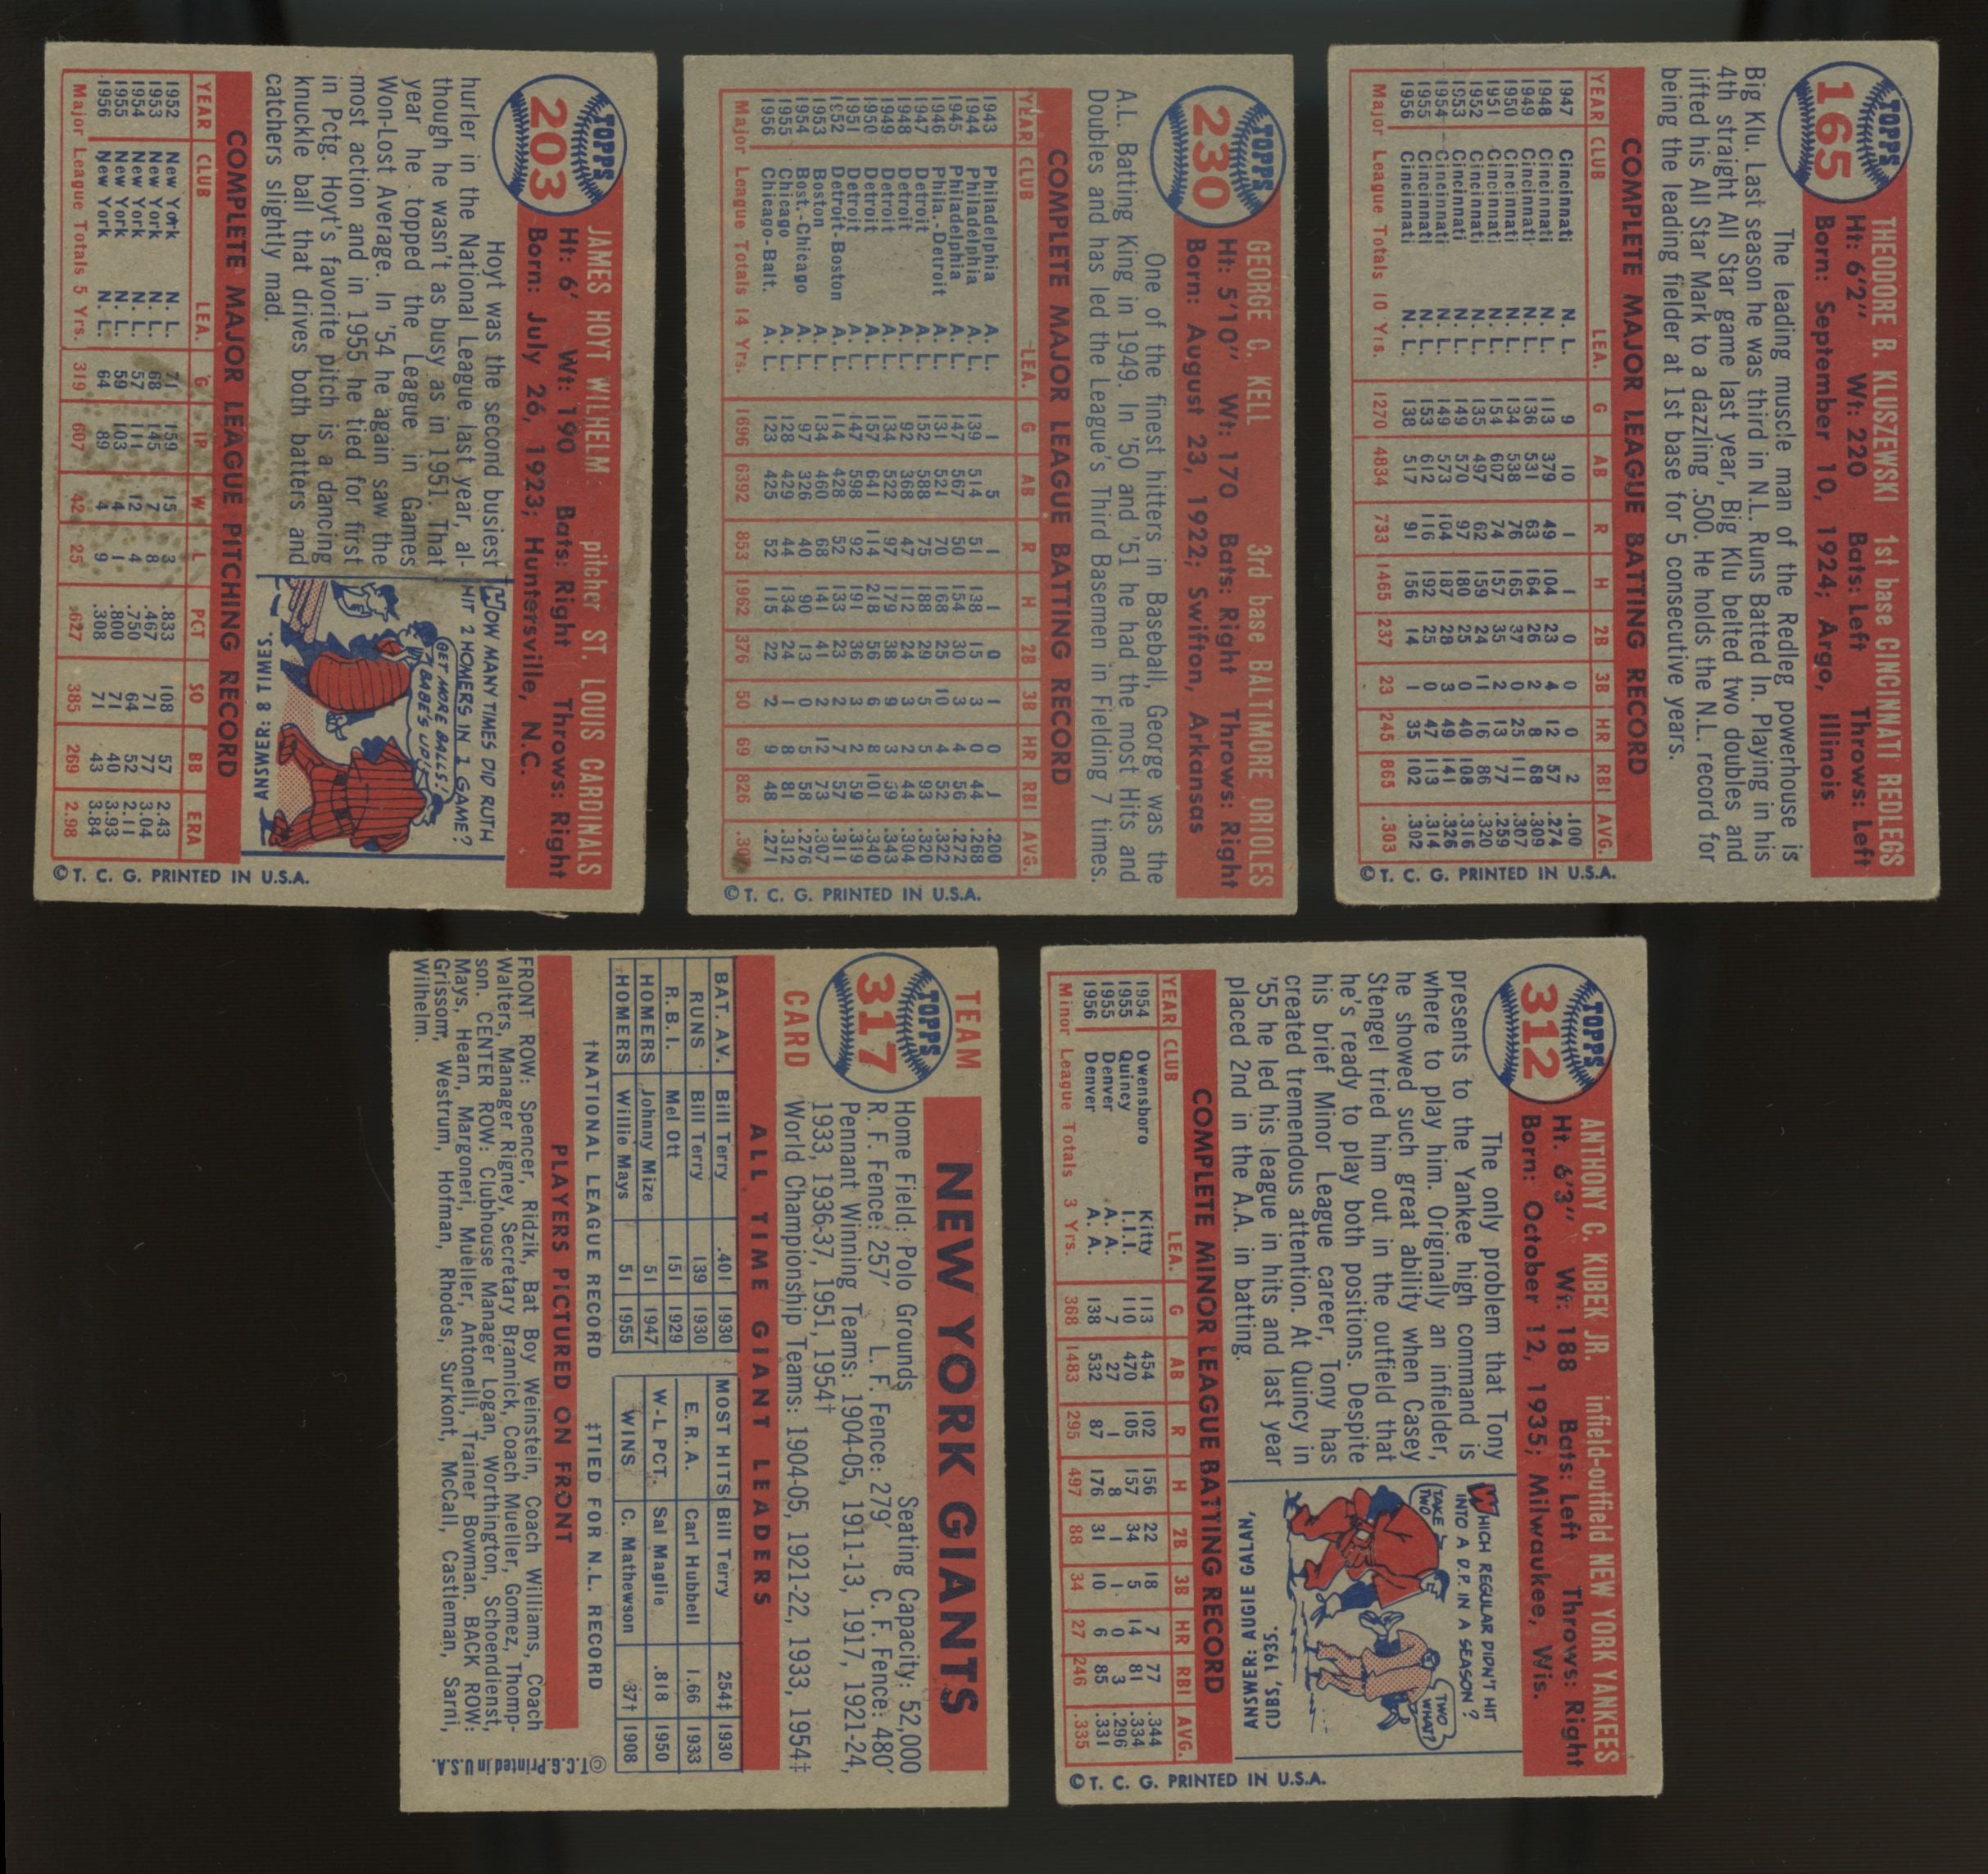 TOPPS
203
JAMES HOYT WILHELM pitcher ST. LOUIS CARDINALS
Ht: 6' Wt: 190 Bats: Right Throws: Right
Born: July 26, 1923; Huntersville, N.C.
Hoyt was the second busiest
hurler in the National League last year, al-
though he wasn't as busy as in 1951. That
year he topped the League in Games
Won-Lost Average. In '54 he again saw the
most action and in 1955 he tied for first
in Pctg. Hoyt's favorite pitch is a dancing
knuckle ball that drives both batters and
catchers slightly mad.
HOW MANY TIMES DID RUTH
HIT 2 HOMERS IN 1 GAME?
GET MORE BALLS!
BABE'S UP!
ANSWER: 8 TIMES.
COMPLETE MAJOR LEAGUE PITCHING RECORD
YEAR CLUB LEA. G IP W L PCT SO BB ERA
1952 New York N. L. 71 159 15 3 .833 108 57 2.43
1953 New York N. L. 68 145 7 8 .467 71 77 3.04
1954 New York N. L. 57 111 12 4 .750 64 52 2.11
1955 New York N. L. 59 103 4 1 .800 71 40 3.93
1956 New York N. L. 64 89 4 9 .308 71 43 3.84
Major League Totals 5 Yrs. 319 607 42 25 .627 385 269 2.98
© T. C. G. PRINTED IN U.S.A.
TOPPS
230
GEORGE C. KELL 3rd base BALTIMORE ORIOLES
Ht: 5'10" Wt: 170 Bats: Right Throws: Right
Born: August 23, 1922; Swifton, Arkansas
One of the finest hitters in Baseball, George was the
A.L. Batting King in 1949. In '50 and '51 he had the most Hits and
Doubles and has led the League's Third Basemen in Fielding 7 times.
COMPLETE MAJOR LEAGUE BATTING RECORD
YEAR CLUB LEA. G AB R H 2B 3B HR RBI AVG.
1943 Philadelphia A. L. 1 5 1 1 0 1 0 1 .200
1944 Philadelphia A. L. 139 514 51 138 15 3 0 44 .268
1945 Philadelphia A. L. 147 567 50 154 30 3 4 56 .272
1946 Phila.-Detroit A. L. 131 521 70 168 25 10 4 52 .322
1947 Detroit A. L. 152 588 75 188 29 5 5 93 .320
1948 Detroit A. L. 92 368 47 112 24 3 2 44 .304
1949 Detroit A. L. 134 522 97 179 38 9 3 59 .343
1950 Detroit A. L. 157 641 114 218 56 6 8 101 .340
1951 Detroit A. L. 147 598 92 191 36 3 2 59 .319
1952 Detroit-Boston A. L. 114 428 52 133 23 2 7 57 .311
1953 Boston A. L. 134 460 68 141 41 2 12 73 .307
1954 Bost.-Chicago A. L. 97 326 40 90 13 0 5 58 .276
1955 Chicago A. L. 128 429 44 134 24 1 8 81 .312
1956 Chicago-Balt. A. L. 123 425 52 115 22 2 9 48 .271
Major League Totals 14 Yrs. 1696 6392 853 1962 376 50 69 826
© T. C. G. PRINTED IN U.S.A.
TOPPS
165
THEODORE B. KLUSZEWSKI 1st base CINCINNATI REDLEGS
Ht: 6'2" Wt: 220 Bats: Left Throws: Left
Born: September 10, 1924; Argo, Illinois
The leading muscle man of the Redleg powerhouse is
Big Klu. Last season he was third in N.L. Runs Batted In. Playing in his
4th straight All Star game last year, Big Klu belted two doubles and
lifted his All Star Mark to a dazzling .500. He holds the N.L. record for
being the leading fielder at 1st base for 5 consecutive years.
COMPLETE MAJOR LEAGUE BATTING RECORD
YEAR CLUB LEA. G AB R H 2B 3B HR RBI AVG.
1947 Cincinnati N. L. 9 10 1 1 0 0 0 2 .100
1948 Cincinnati N. L. 113 379 49 104 23 4 12 57 .274
1949 Cincinnati N. L. 136 531 63 164 26 2 8 68 .309
1950 Cincinnati N. L. 134 538 76 165 37 0 25 111 .307
1951 Cincinnati N. L. 154 607 74 157 35 2 13 77 .259
1952 Cincinnati N. L. 135 497 62 159 24 11 16 86 .320
1953 Cincinnati N. L. 149 570 97 180 25 0 40 108 .316
1954 Cincinnati N. L. 149 573 104 187 28 3 49 141 .326
1955 Cincinnati N. L. 153 612 116 192 25 0 47 113 .314
1956 Cincinnati N. L. 138 517 91 156 14 1 35 102 .302
Major League Totals 10 Yrs. 1270 4834 733 1465 237 23 245 865 .303
© T. C. G. PRINTED IN U.S.A.
TEAM
TOPPS
317
CARD
NEW YORK GIANTS
Home Field: Polo Grounds Seating Capacity: 52,000
R. F. Fence: 257' L. F. Fence: 279' C. F. Fence: 480'
Pennant Winning Teams: 1904-05, 1911-13, 1917, 1921-24,
1933, 1936-37, 1951, 1954†
World Championship Teams: 1904-05, 1921-22, 1933, 1954‡
ALL TIME GIANT LEADERS
BAT. AV. Bill Terry .401 1930 MOST HITS Bill Terry 254‡ 1930
RUNS Bill Terry 139 1930 E. R. A. Carl Hubbell 1.66 1933
R. B. I. Mel Ott 151 1929 W-L PCT. Sal Maglie .818 1950
HOMERS Johnny Mize 51 1947 WINS C. Mathewson 37† 1908
HOMERS Willie Mays 51 1955
†NATIONAL LEAGUE RECORD ‡TIED FOR N.L. RECORD
©T.C.G. Printed in U.S.A.
PLAYERS PICTURED ON FRONT
FRONT ROW: Spencer, Ridzik, Bat Boy Weinstein, Coach Williams, Coach
Walters, Manager Rigney, Secretary Brannick, Coach Mueller, Gomez, Thomp-
son. CENTER ROW: Clubhouse Manager Logan, Worthington, Schoendienst,
Mays, Hearn, Margoneri, Mueller, Antonelli, Trainer Bowman. BACK ROW:
Grissom, Westrum, Hofman, Rhodes, Surkont, McCall, Castleman, Sarni,
Wilhelm.
TOPPS
312
ANTHONY C. KUBEK JR. infield-outfield NEW YORK YANKEES
Ht. 6'3" Wt: 188 Bats: Left Throws: Right
Born: October 12, 1935; Milwaukee, Wis.
The only problem that Tony
presents to the Yankee high command is
where to play him. Originally an infielder,
he showed such great ability when Casey
Stengel tried him out in the outfield that
he's ready to play both positions. Despite
his brief Minor League career, Tony has
created tremendous attention. At Quincy in
'55 he led his league in hits and last year
placed 2nd in the A.A. in batting.
WHICH REGULAR DIDN'T HIT
INTO A D.P. IN A SEASON?
TAKE TWO
TWO WHAT?
ANSWER: AUGIE GALAN,
CUBS, 1935.
COMPLETE MINOR LEAGUE BATTING RECORD
YEAR CLUB LEA. G AB R H 2B 3B HR RBI AVG.
1954 Owensboro Kitty 113 454 102 156 22 18 7 77 .344
1955 Quincy I.I.I. 110 470 105 157 34 5 14 81 .334
1955 Denver A. A. 7 27 1 8 1 1 0 3 .296
1956 Denver A. A. 138 532 87 176 31 10 6 85 .331
Minor League Totals 3 Yrs. 368 1483 295 497 88 34 27 246 .335
© T. C. G. PRINTED IN U.S.A.